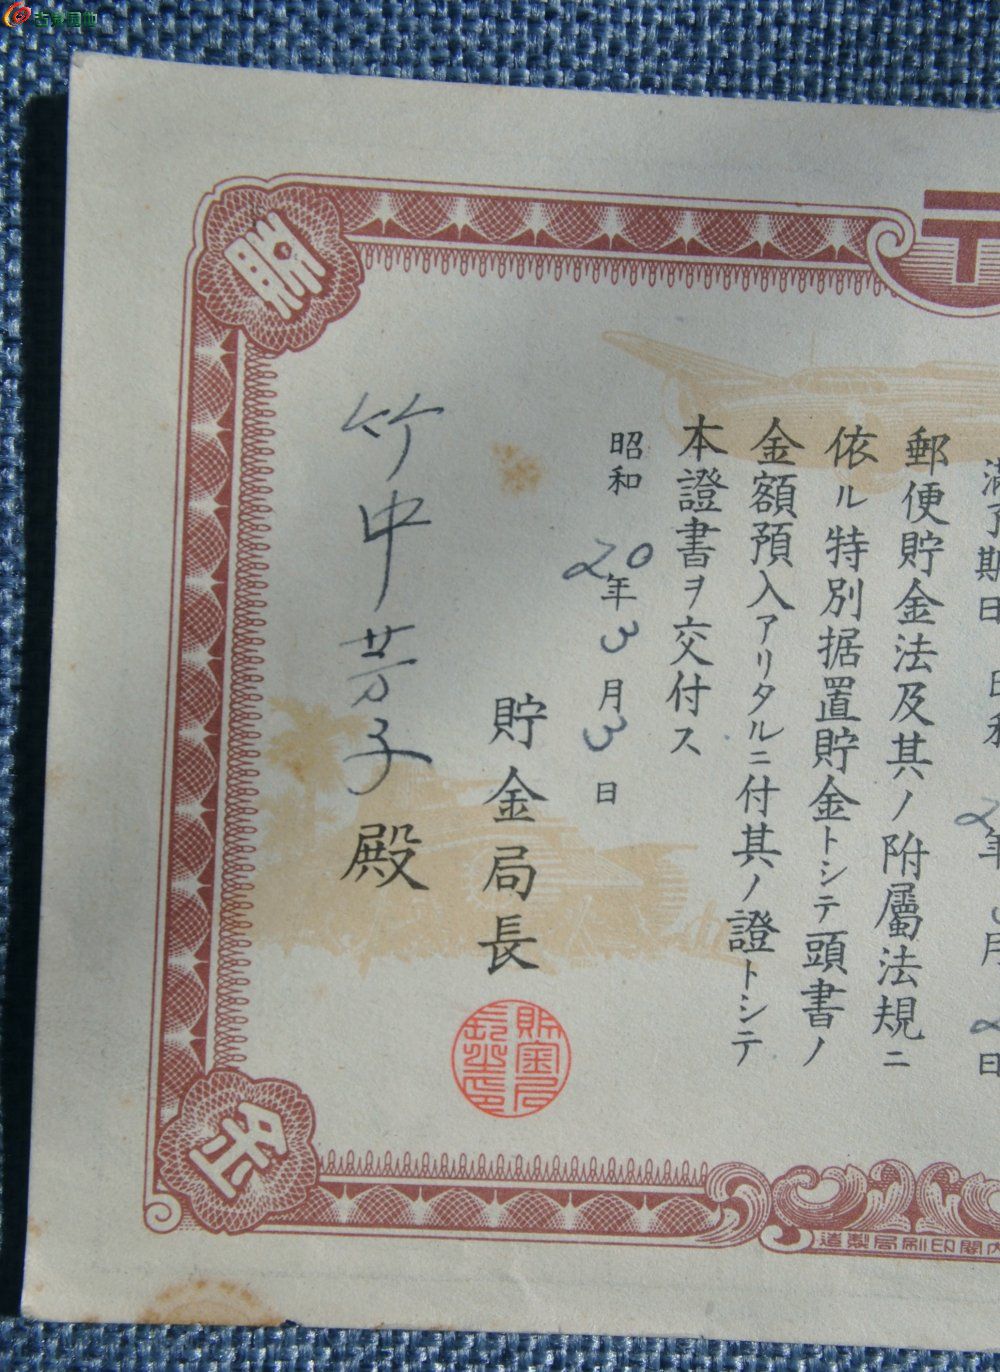 満了期日
年 月 日
郵便貯金法及其ノ附屬法規ニ
依ル特別据置貯金トシテ頭書ノ
金額預入アリタルニ付其ノ證トシテ
本證書ヲ交付ス
昭和20年3月3日
貯金局長
竹中芳子殿
金
内閣印刷局製造